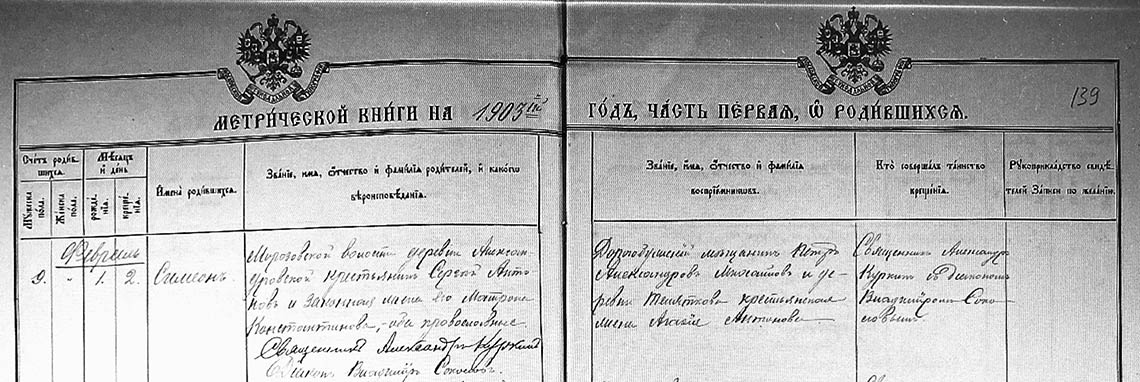 139
МЕТРИ́ЧЕСКОЙ КНИ́ГИ НА 1903 ій ГО́ДЪ, ЧА́СТЬ ПЕ́РВАЯ, Ѡ РОДИ́ВШИХСЯ.
Сче́тъ роди́вшихся.
Му́жеска по́ла.
Же́нска по́ла.
Мѣ́сяцъ и́ де́нь
рожде́нія.
креще́нія.
И҆мена̀ роди́вшихся.
Зва́нїе, и́мя, ѻ҆́тчество и҆ фами́лїя роди́телей, и҆ како́гѡ вѣроисповѣ́данїя.
Зва́нїе, и́мя, ѻ҆́тчество и҆ фами́лїя воспрїе́мниковъ.
Кто̀ соверша́лъ та́инство креще́нїя.
Рукоприкла́дство свидѣ́телей За́писи по жела́нїю.
Февраль
9. " 1. 2. Симеонъ.
Морозовской волости деревни Александровской крестьянинъ Сергѣй Антоновъ и законная жена его Матрона Константинова, оба православные
Священникъ Александръ Куркинъ
Діаконъ Владиміръ Соколовъ.
Дорогобужскій мѣщанинъ Петръ
Александровъ и деревни крестьянская
жена Антонова
Священникъ Александръ
Куркинъ съ діакономъ
Владиміромъ Соколовымъ